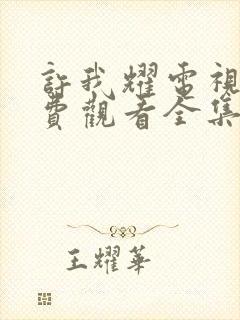 許我耀電視
費觀看全集
王耀華